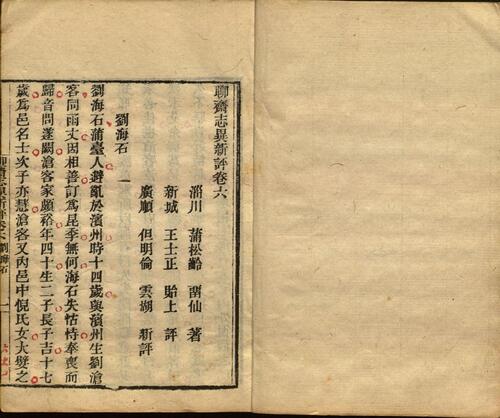 聊齋志異新評卷六
淄川 蒲松齡 畱仙 著
新城 王士正 貽上 評
廣順 但明倫 雲湖 新評
劉海石
劉海石蒲臺人避亂於濱州時十四歲與濱州生劉滄
客同函丈因相善訂爲昆季無何海石失怙恃奉喪而
歸音問遂闕滄客家頗裕年四十生二子長子吉十七
歲爲邑名士次子亦慧滄客又內邑中倪氏女大嬖之
聊齋志異新評 卷六 劉海石 一